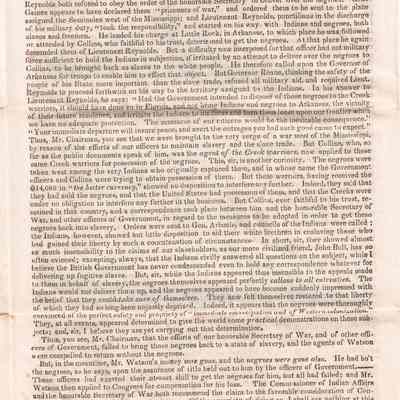 Reynolds both refused to obey the order of the honorable Secretary to
Gaines appears to have declared them "prisoners of war," and ordered them to be sent to the place
assigned the Seminoles west of the Mississippi; and Lieutenant Reynolds, punctilious in the discharge
of his military duty, "took the responsibility," and started on his way with Indians and negroes, both
slaves and freemen. He landed his charge at Little Rock, in Arkansas, to which place he was followed
or attended by Collins, who, faithful to his trust, desired to get the negroes. At that place he again
demanded them of Lieutenant Reynolds. But a difficulty now interposed for that officer had not military
force sufficient to hold the Indians in subjection, if irritated by an attempt to deliver over the negroes to
Collins, to be brought back as slaves to the white people. He therefore called upon the Governor of
Arkansas for troops to enable him to effect that object. But Governor Roane, thinking the safety of the
people of his State more important than the slave trade, refused all military aid, and required Lieut.
Reynolds to proceed forthwith on his way to the territory assigned to the Indians. In his answer to
Lieutenant Reynolds, he says: "Had the Government intended to dispose of these negroes to the Creek
warriors, it should have done so in Florida, and not bring Indians and negroes to Arkansas, the vicinity
of their future residence, and irritate the Indians to
we have no adequate protection. The massacre of our citizens would be the inevitable consequence."
"Your immediate departure will insure peace, and avert the outrages you had such good cause to expect."
Thus, Mr. Chairman, you see that we were brought to the very verge of a war west of the Mississippi,
by reason of the efforts of our officers to maintain slavery and the slave trade. But Collins, who, so
far as the public documents speak of him, was the agent of the Creek warriors, now applied to these
same Creek warriors for possession of the negroes. This, sir, is another curiosity. The negroes were
then west among the very Indians who originally captured them, and in whose name the Government
officers and Collins were trying to obtain possession of them. But these warriors, having received the
$14,000 in "the barter currency," showed no disposition to interfere any further. Indeed, they said that
they had sold the negroes, and that the United States had possession of them, and that the Creeks were
under no obligation to interfere any further in the business. But Collins, ever faithful to his trust, re-
mained in that country, and a correspondence took place between him and the honorable Secretary of
War, and other officers of Government, in regard to the measures to be adopted in order to get these
negroes back into slavery. Orders were sent to Gen. Arbuckle, and councils of the Indians were called;
the Indians, however, showed but little disposition to aid their white brethren in enslaving those who
had gained their liberty by such a concatination of circumstances. In short, sir, they showed almost
as much insensibility to the claims of our slaveholders, as our more civilized friend, John Bull, has so
often evinced; excepting, always, that the Indians civilly answered all questions on the subject, while I
believe the British Government has never condescended even to hold any correspondence whatever for
delivering up fugitive slaves. But, sir, while the Indians appeared thus insensible to the appeals made
to them in behalf of slavery, the negroes themselves appeared perfectly callous to all entreaties. The
Indians would not deliver them up, and the negroes appeared to have become suddenly impressed with
the belief that they could take care of themselves. They now felt themselves restored to that liberty
of which they had so long been unjustly deprived. Indeed, it appears that the negroes were thoroughly
convinced of the perfect safety and propriety of "immediate emancipation and of Western colonization."
They, at all events, appeared determined to give the world some practical demonstrations on those sub-
jects; and, sir, I believe they are yet carrying out that determination.
Thus, you see, Mr. Chairman, that the efforts of our honorable Secretary of War, and of other offi-
cers of Government, failed to bring those negroes back to a state of slavery, and the agents of Watson
were compelled to return without the negroes.
But, in the meantime, Mr. Watson's money was gone, and the negroes were gone also. He had bo't
the negroes, as he says, upon the assurance of title held out to him by the officers of Government.
These officers had exerted their utmost skill to get the negroes for him, but all had failed; and Mr.
Watson then applied to Congress for compensation for his loss. The Commissioner of Indian Affairs
and the honorable Secretary of War both recommend the claim to the favorable consideration of Con-